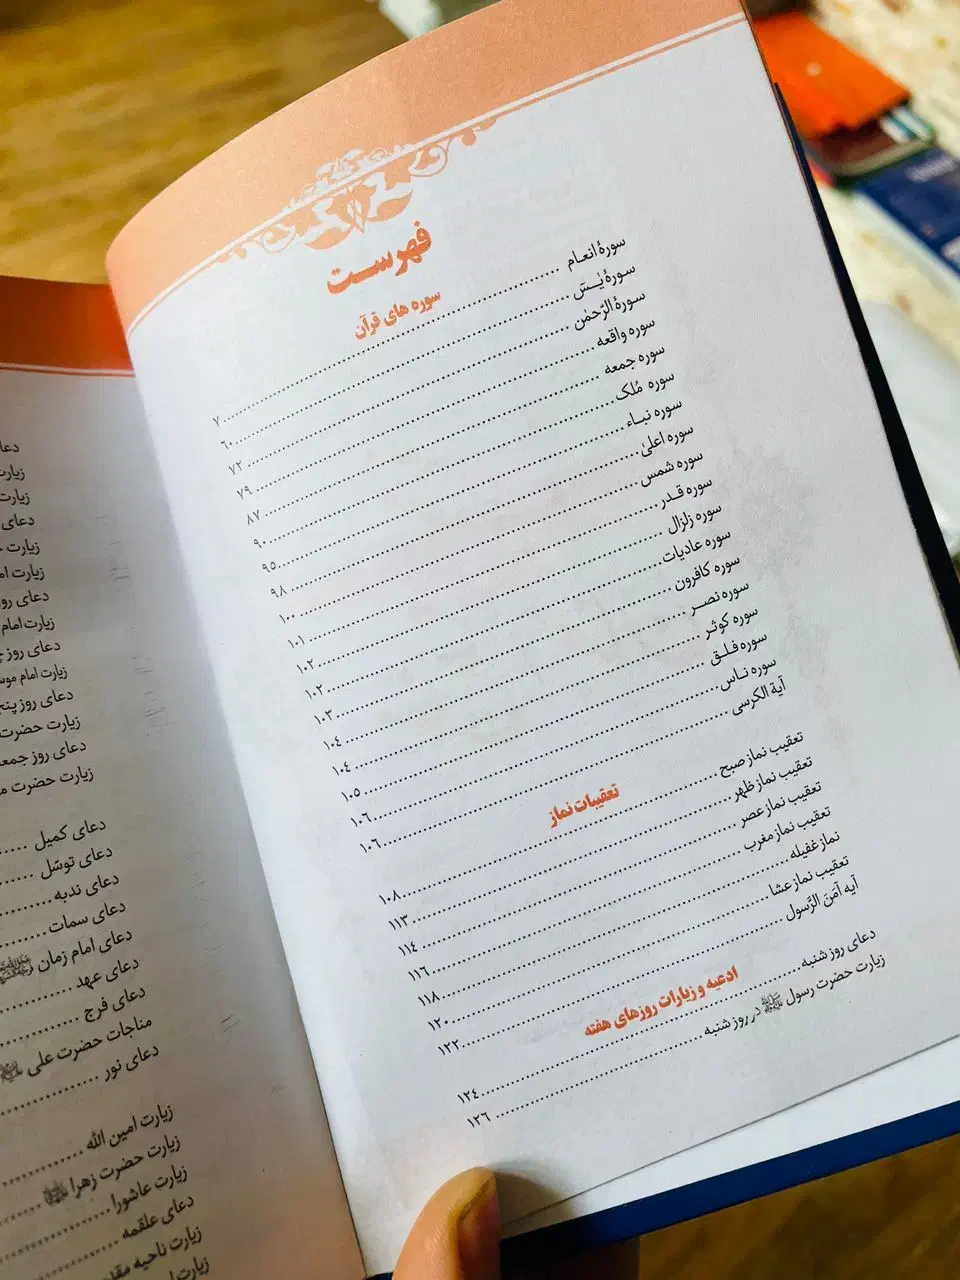 فهرست
سوره های قرآن
سورۀ انعام ۷
سورۀ یٰسٓ ۶۰
سورۀ الرّحمٰن ۷۲
سوره واقعه ۷۹
سوره جمعه ۸۷
سوره مُلک ۹۰
سوره نباء ۹۵
سوره اعلیٰ ۹۸
سوره شمس ۱۰۰
سوره قدر ۱۰۱
سوره زلزال ۱۰۲
سوره عادیات ۱۰۲
سوره کافرون ۱۰۳
سوره نصر ۱۰۴
سوره کوثر ۱۰۴
سوره فلق ۱۰۵
سوره ناس ۱۰۶
آیة الکرسی ۱۰۶
تعقیبات نماز
تعقیب نماز صبح ۱۰۸
تعقیب نماز ظهر ۱۱۳
تعقیب نماز عصر ۱۱۴
تعقیب نماز مغرب ۱۱۶
نماز غفیله ۱۱۸
تعقیب نماز عشا ۱۲۰
آیه آمَنَ الرَّسول ۱۲۲
ادعیه و زیارات روزهای هفته
دعای روز شنبه ۱۲۴
زیارت حضرت رسول ﷺ در روز شنبه ۱۲۶
زیارت
زیارت
دعای
زیارت
زیارت
دعای
زیارت امام
دعای روز
زیارت امام
دعای روز
زیارت حضرت
دعای روز جمعه
زیارت حضرت
دعای کمیل
دعای توسّل
دعای ندبه
دعای سمات
دعای امام زمان
دعای عهد
دعای فرج
مناجات حضرت علی
دعای نور
زیارت امین الله
زیارت حضرت زهرا
زیارت عاشورا
دعای علقمه
زیارت ناحیه
زیارت